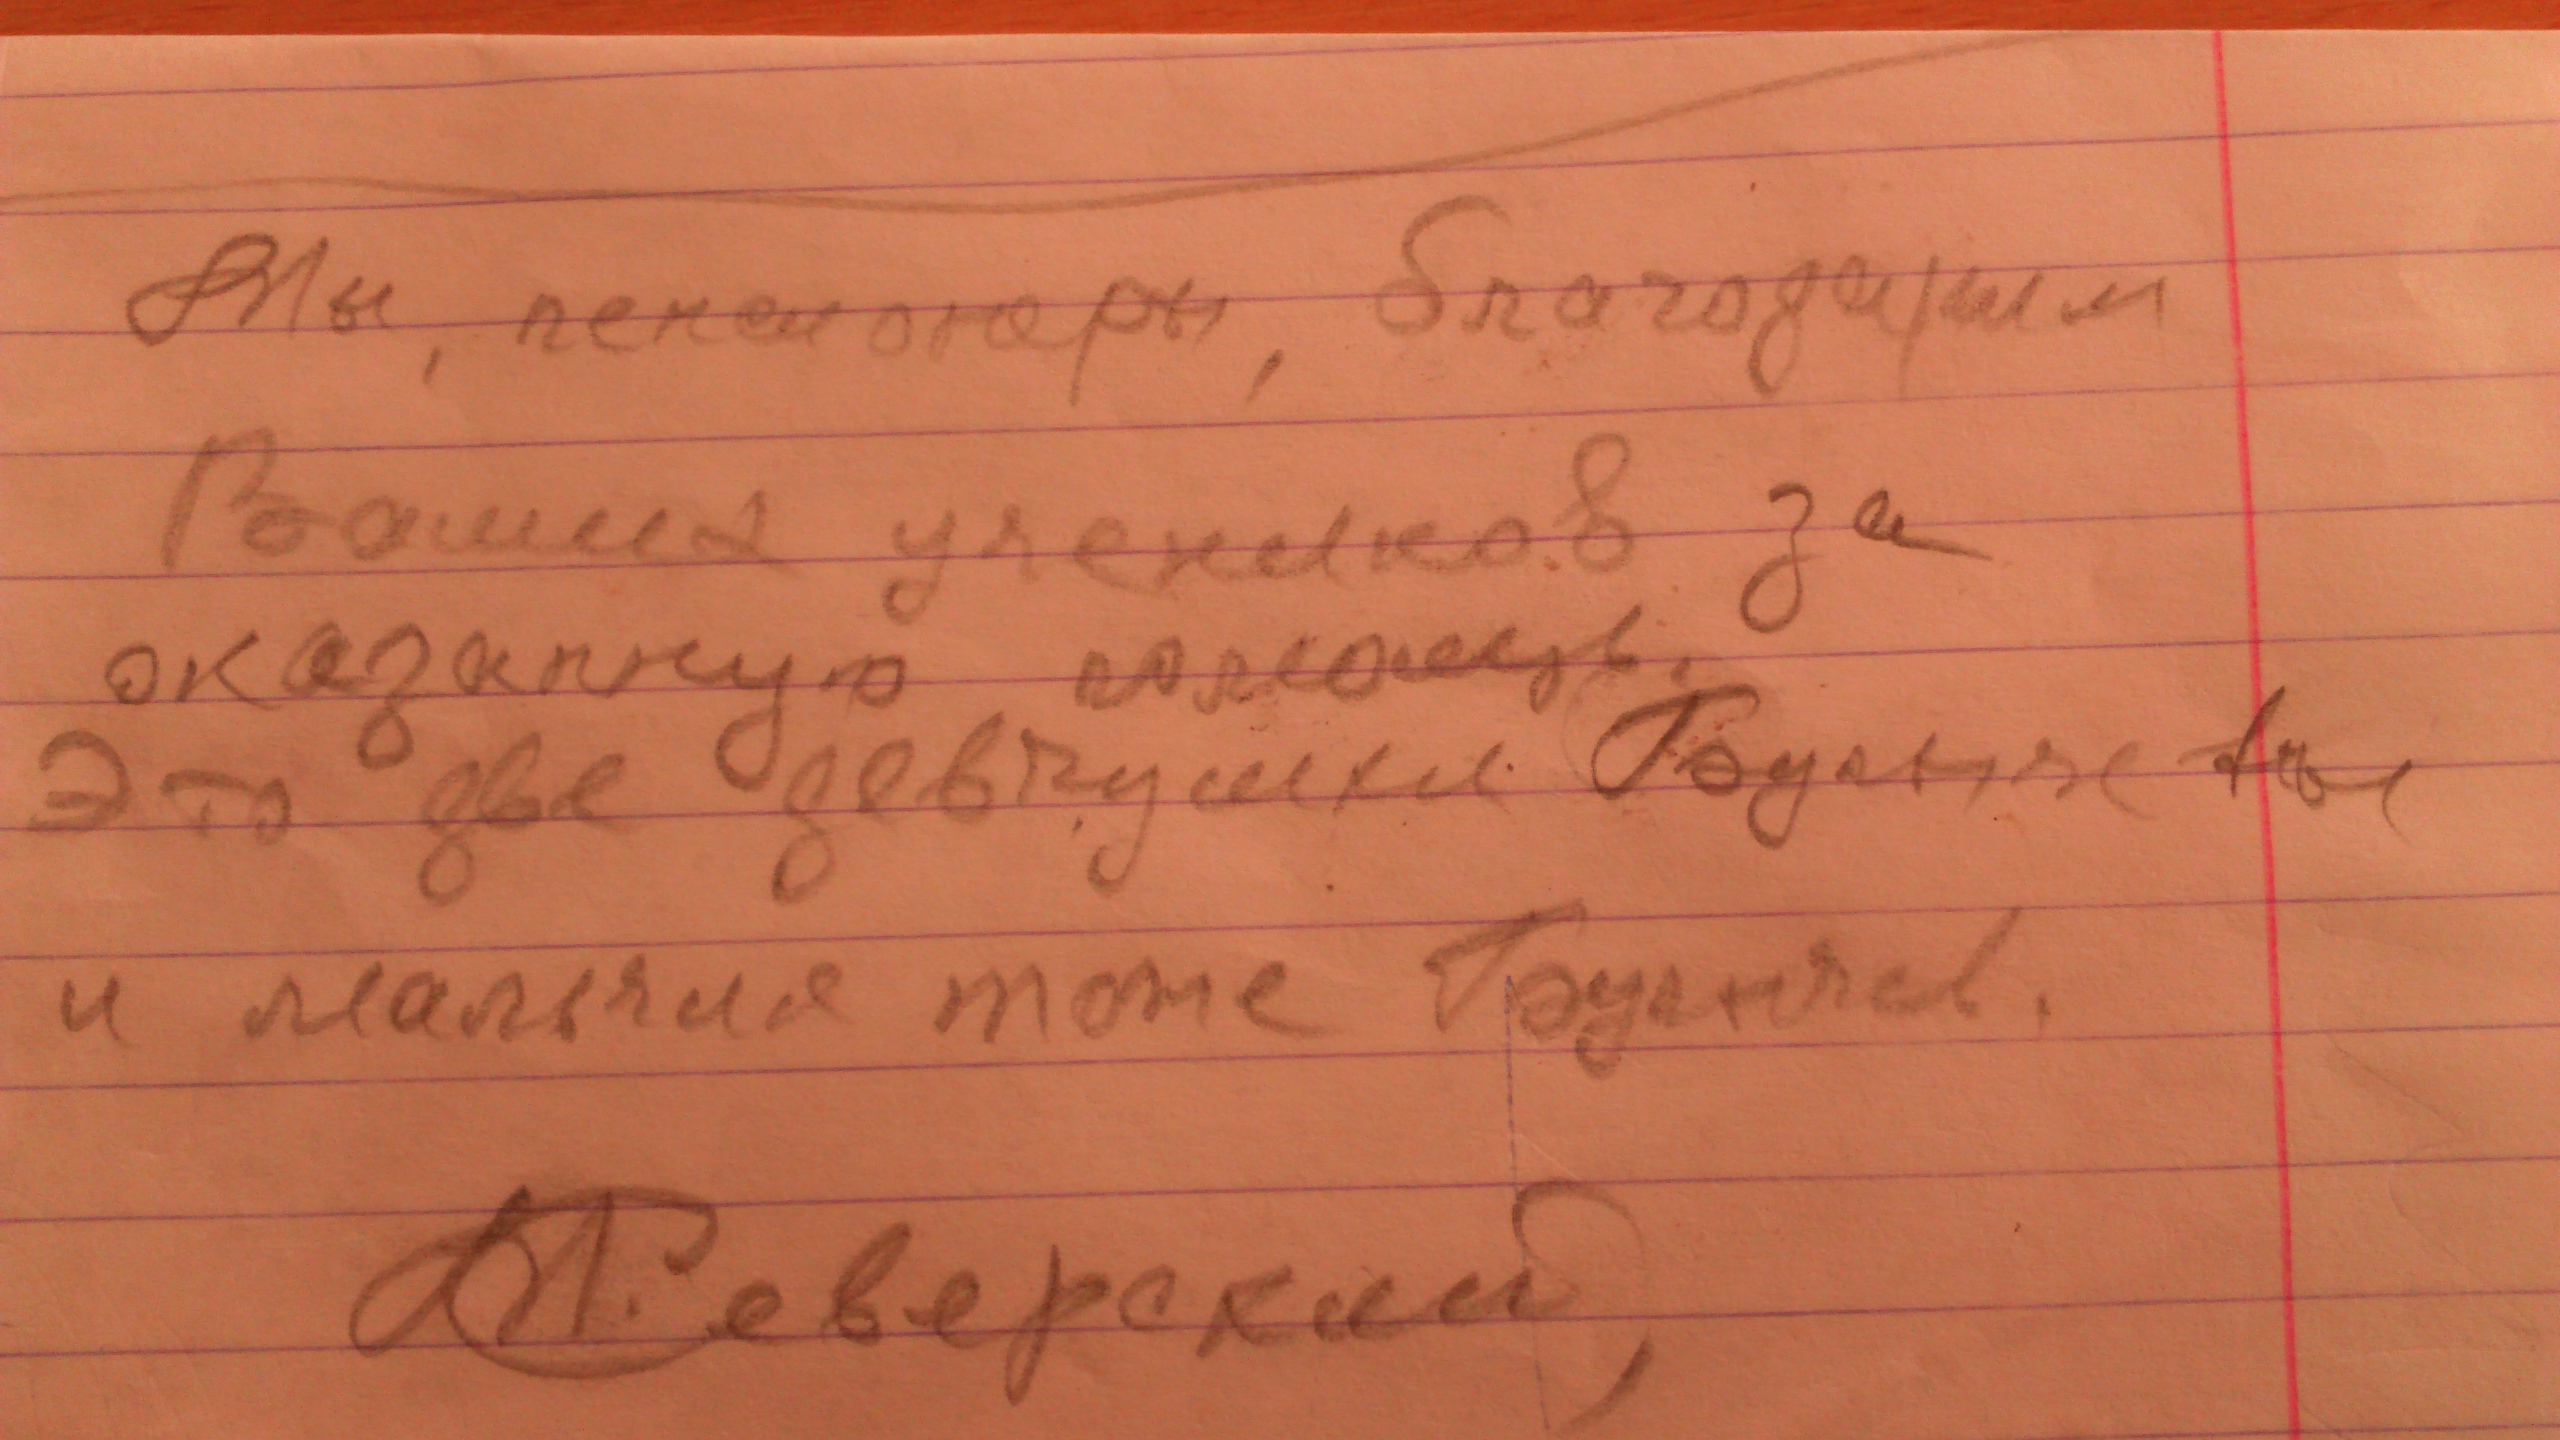 Мы, пенсионеры, благодарим
Ваших учеников за
оказанную помощь.
Это две девчушки
и мальчик тоже
Северский,